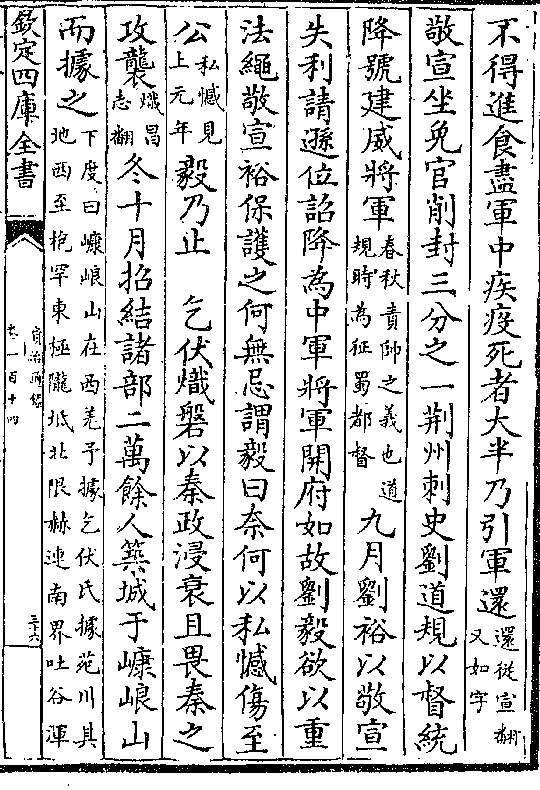 不得進食盡軍中疾疫死者大半乃引軍還還從宣翻又如字
敬宣坐免官削封三分之一荆州刺史劉道規以督統
降號建威將軍春秋責帥之義也道規時為征蜀都督九月劉裕以敬宣
失利請遜位詔降為中軍將軍開府如故劉毅欲以重
法繩敬宣裕保護之何無忌謂毅曰奈何以私憾傷至
公私憾見上元年毅乃止　乞伏熾磐以秦政浸衰且畏秦之
攻襲熾昌志翻冬十月招結諸部二萬餘人築城于嵻崀山
而據之下度曰嵻崀山在西羌予據乞伏氏據苑川其地西至枹罕東極隴坻北限赫連南界吐谷渾
欽定四庫全書
資治通鑑
卷一百十四
三十六